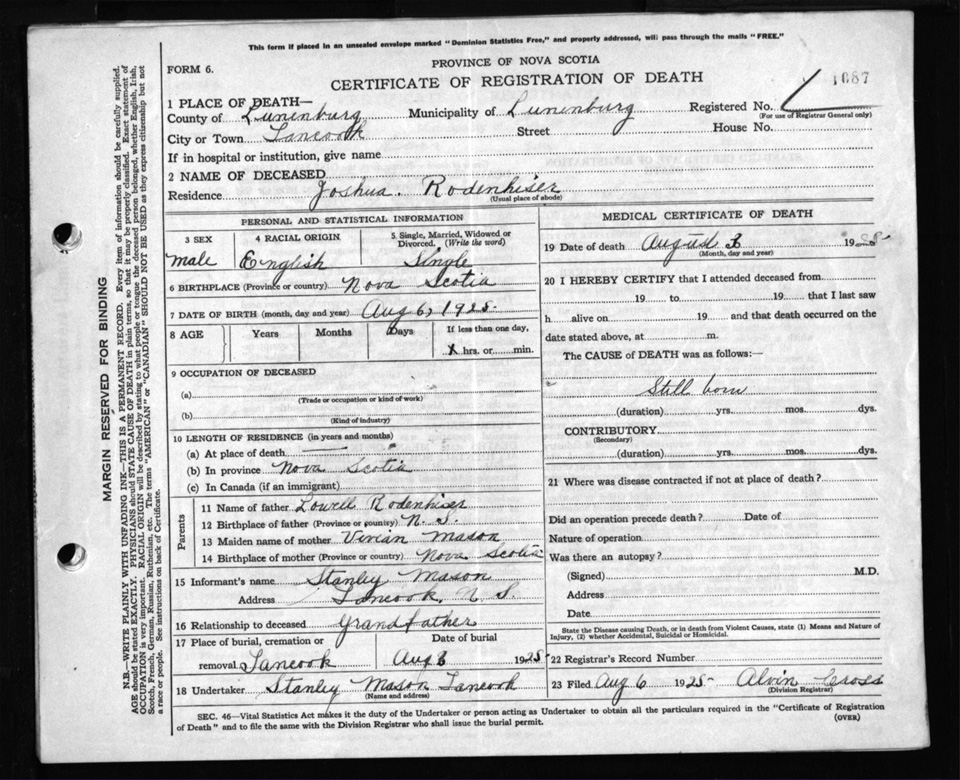 This form if placed in an unsealed envelope marked "Dominion Statistics Free," and properly addressed, will pass through the mails "FREE."
PROVINCE OF NOVA SCOTIA
FORM 6.
CERTIFICATE OF REGISTRATION OF DEATH
1687
1 PLACE OF DEATH—
County of Lunenburg Municipality of Lunenburg Registered No.
(For use of Registrar General only)
City or Town Tancook Street House No.
If in hospital or institution, give name
2 NAME OF DECEASED Joshua. Rodenhiser
Residence (Usual place of abode)
PERSONAL AND STATISTICAL INFORMATION
3 SEX 4 RACIAL ORIGIN 5 Single, Married, Widowed or Divorced. (Write the word)
male English Single
6 BIRTHPLACE (Province or country) Nova Scotia
7 DATE OF BIRTH (month, day and year) Aug 6, 1925.
8 AGE Years Months Days If less than one day,
X hrs. or min.
9 OCCUPATION OF DECEASED
(a)
(Trade or occupation or kind of work)
(b)
(Kind of industry)
10 LENGTH OF RESIDENCE (in years and months)
(a) At place of death
(b) In province Nova Scotia
(c) In Canada (if an immigrant)
Parents
11 Name of father Lowell Rodenhiser
12 Birthplace of father (Province or country) N. S.
13 Maiden name of mother Vivian Mason
14 Birthplace of mother (Province or country) Nova Scotia
15 Informant's name Stanley Mason
Address Tancook, N. S.
16 Relationship to deceased Grandfather
17 Place of burial, cremation or Date of burial
removal Tancook Aug 6 1925.
18 Undertaker Stanley Mason Tancook
(Name and address)
MEDICAL CERTIFICATE OF DEATH
19 Date of death August 19
(Month, day and year)
20 I HEREBY CERTIFY that I attended deceased from
19 to 19 that I last saw
h alive on 19 and that death occurred on the
date stated above, at m.
The CAUSE of DEATH was as follows:—
Still born
(duration) yrs. mos. dys.
CONTRIBUTORY
(Secondary)
(duration) yrs. mos. dys.
21 Where was disease contracted if not at place of death?
Did an operation precede death? Date of
Nature of operation
Was there an autopsy?
(Signed) M.D.
Address
Date
State the disease causing Death, or in death from Violent Causes, state (1) Means and Nature of
Injury, (2) whether Accidental, Suicidal or Homicidal.
22 Registrar's Record Number
23 Filed Aug 6 1925 Alvin Cross
(Division Registrar)
SEC. 46—Vital Statistics Act makes it the duty of the Undertaker or person acting as Undertaker to obtain all the particulars required in the "Certificate of Registration
of Death" and to file the same with the Division Registrar who shall issue the burial permit.
(OVER)
MARGIN RESERVED FOR BINDING
N.B.—WRITE PLAINLY WITH UNFADING INK—THIS IS A PERMANENT RECORD. Every item of information should be carefully supplied.
AGE should be stated EXACTLY. PHYSICIANS should STATE CAUSE OF DEATH in plain terms, so that it may be properly classified. Exact statement of
OCCUPATION is very important. RACIAL ORIGIN will be described by stating to what people or tongue the deceased person belonged, whether English, Irish,
Scotch, French, German, Russian, Ruthenian, etc. The terms "AMERICAN" or "CANADIAN" SHOULD NOT BE USED as they express citizenship but not
a race or people. See instructions on back of Certificate.